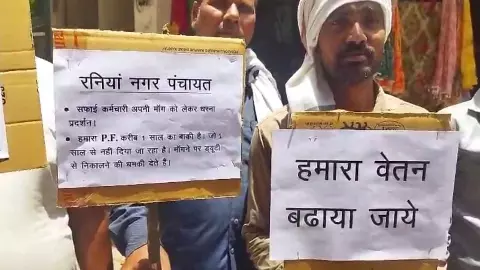 रनियां नगर पंचायत
• सफाई कर्मचारी अपनी माँग को लेकर धरना
प्रदर्शन।
• हमारा P.F. करीब 1 साल का बाकी है। जो 1
साल से नहीं दिया जा रहा है। माँगने पर ड्यूटी
से निकालने की धमकी देते हैं।
हमारा वेतन
बढाया जाये